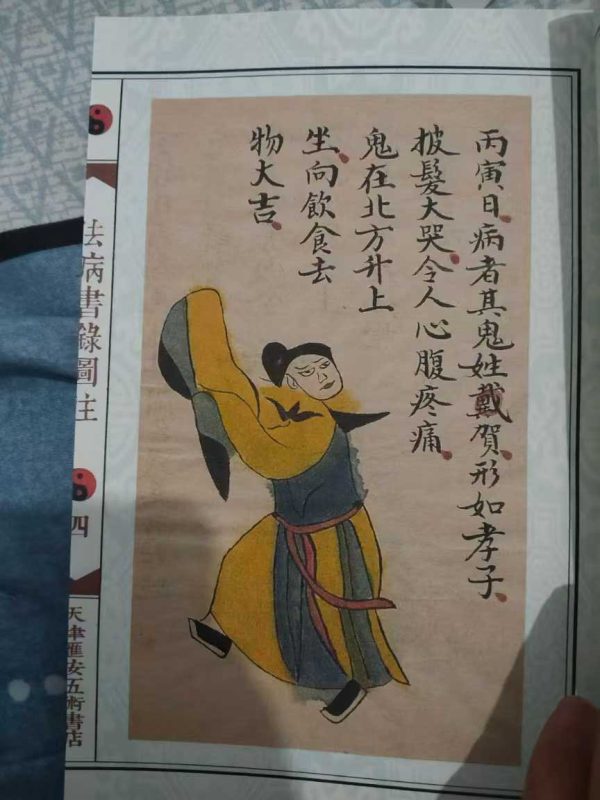 丙寅日病者其鬼姓戴賀形如孝子
披髮大哭令人心腹疼痛
鬼在北方升上
坐向飲食去
物大吉
祛病書錄圖注
四
天津匯安五術書店